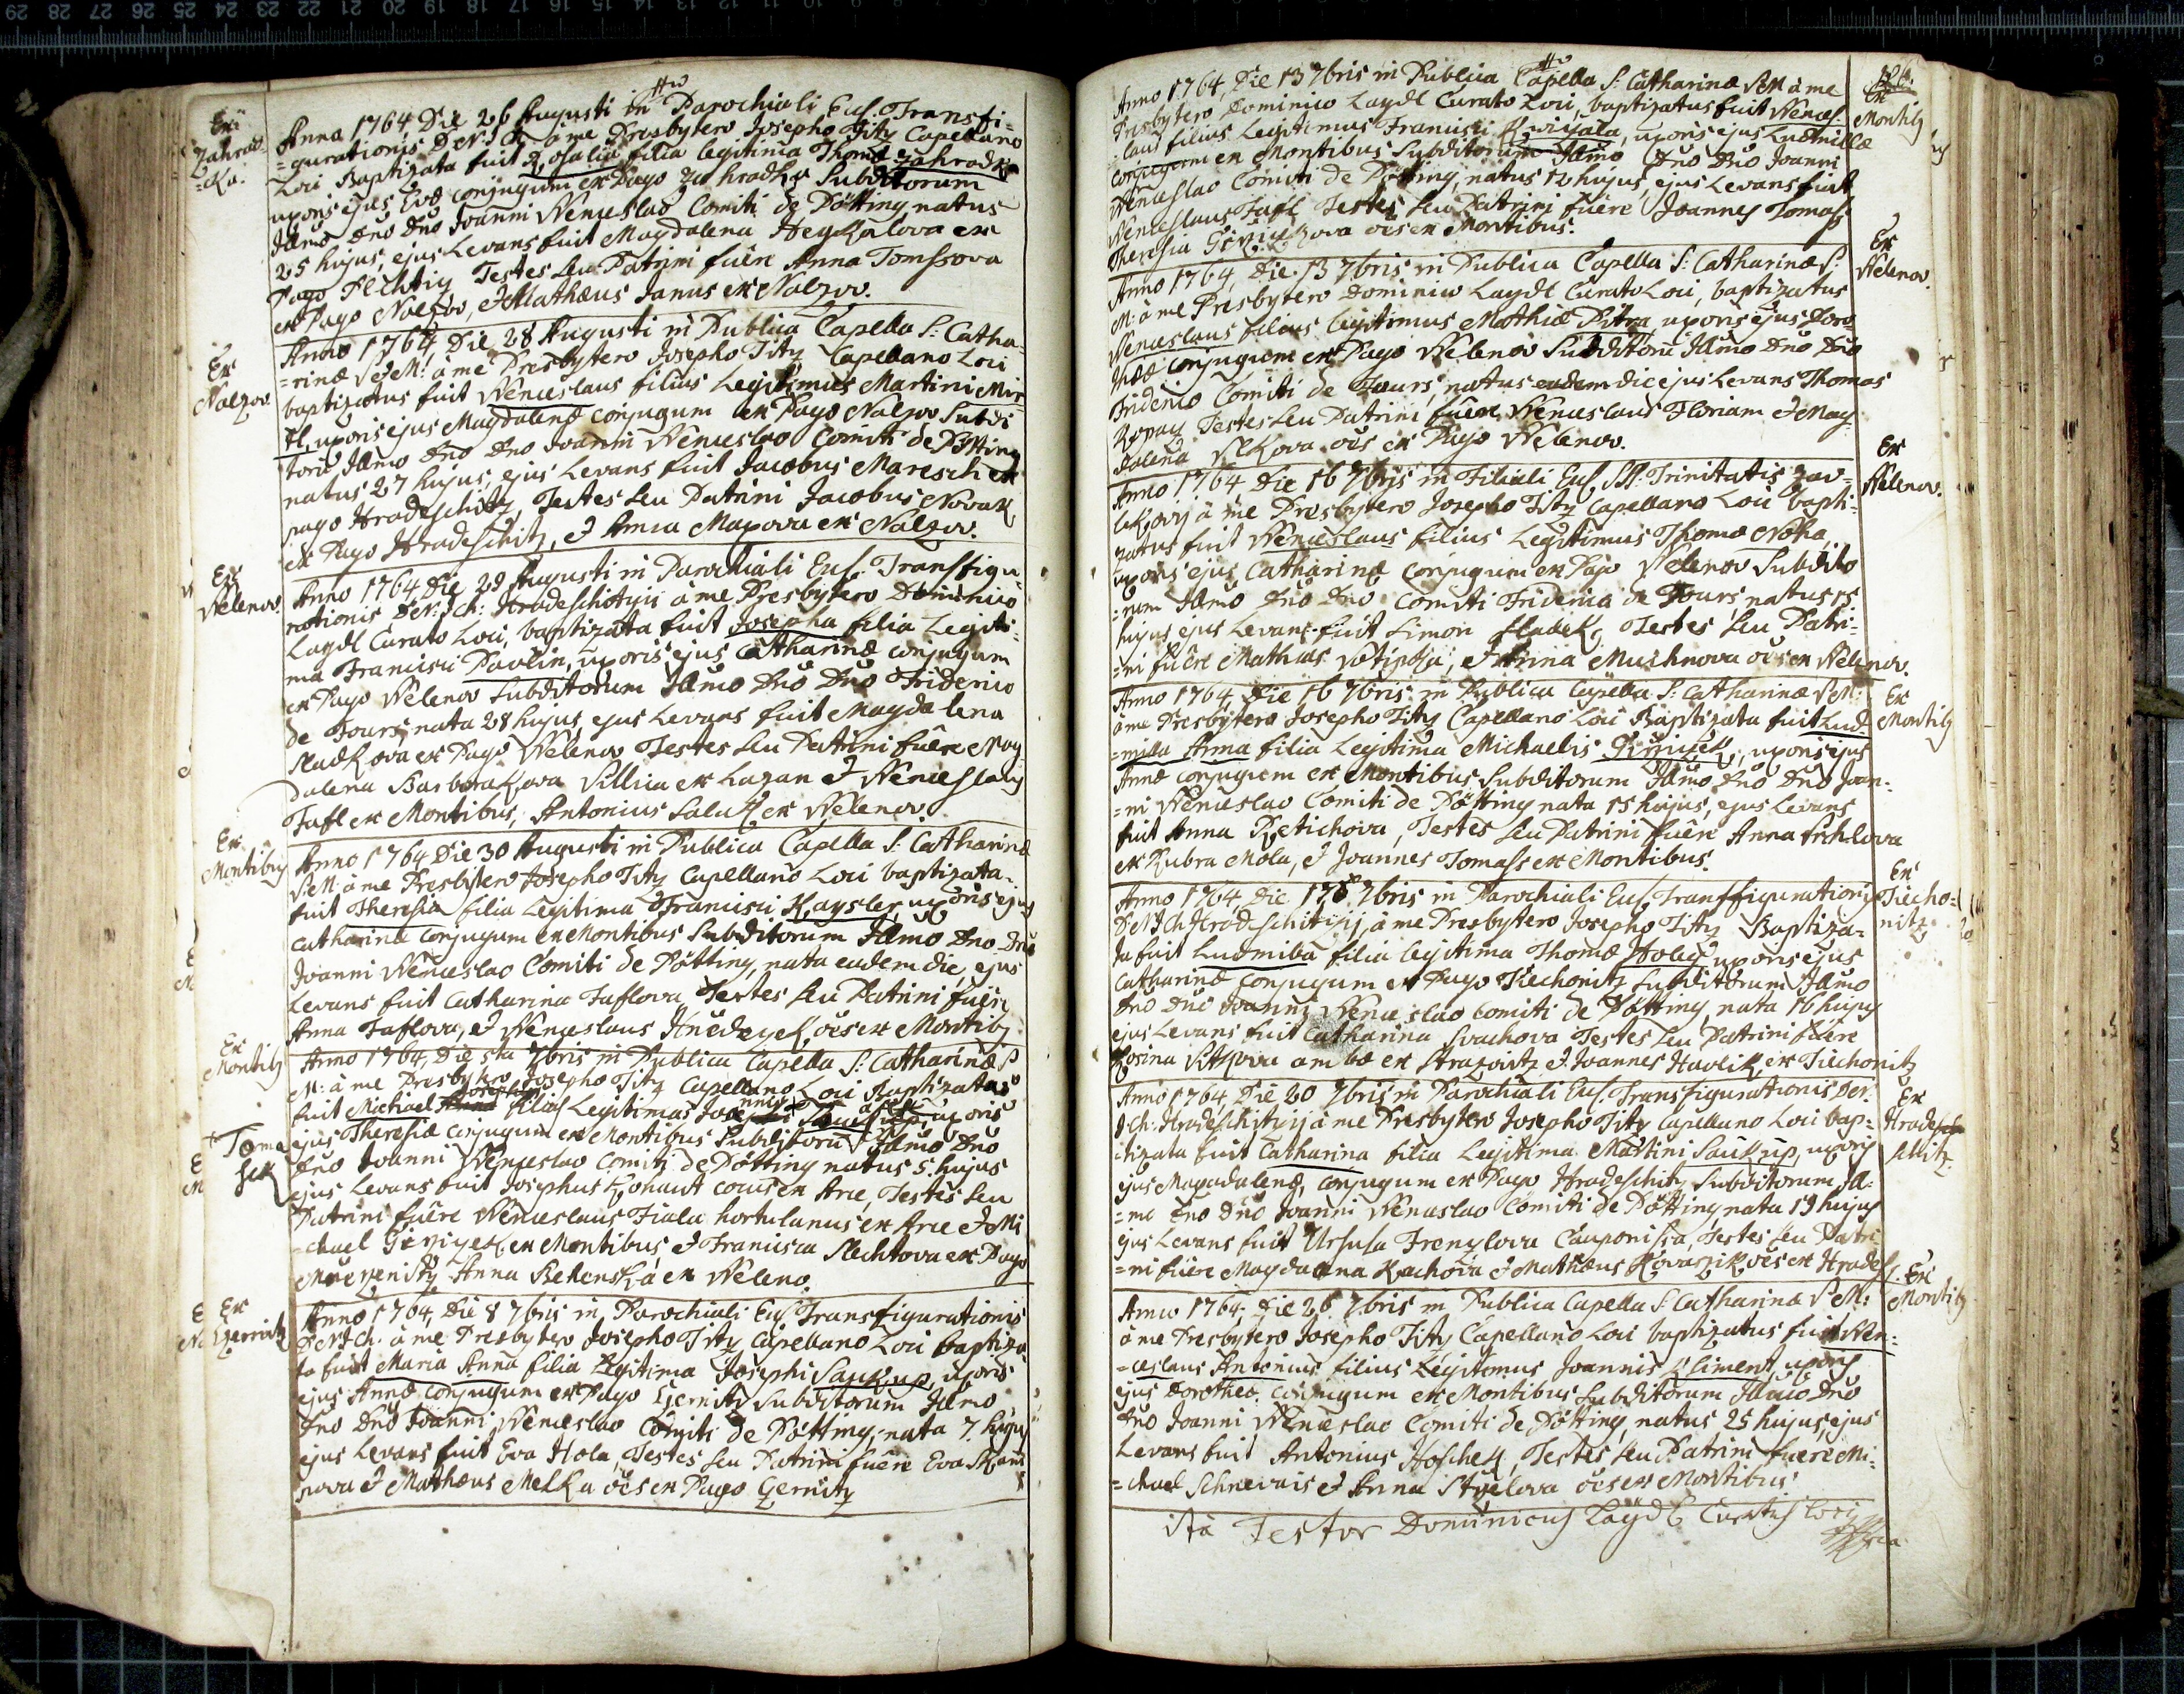 Anno 1764, Die 26 Augusti in Parochiali Eccl. Transfi=
=gurationis D N J Ch à me Presbytero Josepho Tity Capellano
Loci Baptizata fuit Rosalia filia legitima Thomæ Zahradka
uxoris ejus Evæ conjugum ex Pago Zahradka Subditorum
Illmo Dno Dno Joanni Wenceslao Comiti de Pötting natus
25 hujus, ejus Levans fuit Magdalena Heykalova ex
Pago Plichtig Testes seu Patrini fuêre Anna Tomssova
ex Pago Nalzov, & Mathæus Janus ex Nalzov.
Ex
Zahrad-
=ka.
Anno 1764 Die 28 Augusti in Publica Capella S: Catha-
=rinæ V & M: à me Presbytero Josepho Tity Capellano Loci
baptizatus fuit Wenceslaus filius Legitimus Martini
uxoris ejus Magdalenæ conjugum ex Pago Nalzov Subdi
Illmo Dno Dno Joanni Wenceslao Comiti de Pötting
natus 27 hujus, ejus Levans fuit Jacobus Maresch ex
pago Hradeschitz, Testes seu Patrini Jacobus Novak
ex Pago Hradeschitz, & Anna Maxova ex Nalzov.
Ex
Nalzov
Anno 1764 Die 29 Augusti in Parochiali Eccl. Transfigu
rationis D N J Ch: à me Presbytero Dominico
Laydl Curato Loci, baptizata fuit Josepha filia Legiti-
ma Francisci Pavlin, uxoris ejus Catharinæ conjugum
ex Pago Welenov Subditorum Illmo Dno Dno Friderico
de Tours, nata 28 hujus, ejus Levans fuit Magdalena
Sladkova ex Pago Welenov Testes seu Patrini fuêre Mag
dalena Barborakova Villica ex Lazan & Wenceslaus
Tafl ex Montibus, Antonius ex Welenov.
Ex
Welenov.
Anno 1764 Die 30 Augusti in Publica Capella S: Catharinæ
V M: à me Presbytero Josepho Tity Capellano Loci baptizata
fuit Theresia filia Legitima Francisci Kaysler, uxoris ejus
Catharinæ conjugum ex Montibus Subditorum Illmo Dno Dno
Joanni Wenceslao Comiti de Pötting, nata eadem die, ejus
Levans fuit Catharina Taflova, Testes seu Patrini fuêre
Anna Taflova, & Wenceslaus ex Montib9
Ex
Montibus
Anno 1764, Die 5ta 7bris in Publica Capella S: Catharinæ V
M: à me Presbytero Josepho Tity Capellano Loci Baptizatus
fuit Michael filius Legitimus uxoris
ejus Theresiæ conjugum ex Montibus Subditorū Illmo Dno
Dno Joanni Wenceslao Comiti de Pötting natus 5 hujus
ejus Levans fuit Josephus Kohaut ex Arce, Testes seu
Patrini fuêre Wenceslaus Fiala hortulanus ex Arce & Mi
=chael ex Montibus, & Francisca Slechtova ex Pago
Anna ex Weleno.
Ex
Montib9
+ Toma
sek
Anno 1764, Die 8 7bris in Parochiali Eccl. Transfigurationis
D N J Ch. à me Presbytero Josepho Tity Capellano Loci baptiza
ta fuit Maria Anna filia Legitima Josephi Saukup, uxoris
ejus Annæ conjugum ex Pago Czernitz Subditorum Illmo
Dno Dno Joanni Wenceslao Comiti de Pötting, nata 7. hujus
ejus Levans fuit Eva Hola, Testes seu Patrini fuêre Eva
& Mathæus Melka ex Pago Czernitz
Ex
Czernitz
Anno 1764, Die 13 7bris in Publica Capella S: Catharinæ V M à me
Presbytero Dominico Laydl Curato Loci, baptizatus fuit Wences-
laus filius Legitimus Francisci Kwizala, uxoris ejus Ludmillæ
conjugum ex Montibus Subditorum Illmo Dno Dno Joanni
Wenceslao Comiti de Pötting, natus 12 hujus, ejus Levans fuit
Wenceslaus Tafl Testes seu Patrini fuêre Joannes Tomass
Theresia ex Montibus.
126.
Ex
Montib9
Anno 1764, Die 13 7bris in Publica Capella S: Catharinæ V:
M: à me Presbytero Dominico Laydl Curato Loci, baptizatus
Wenceslaus filius Legitimus Mathiæ Pitra, uxoris ejus Doro
theæ conjugum ex Pago Welenov Subditorū Illmo Dno Dno
Friderico Comiti de Tours, natus eadem die ejus Levans Thomas
Testes seu Patrini fuêre Wenceslaus Floriam & Mag-
dalena ex Pago Welenov.
Ex
Welenov.
Anno 1764 Die 16 7bris in Filiali Eccl. SS. Trinitatis Zav-
à me Presbytero Josepho Tity Capellano Loci bapti-
zatus fuit Wenceslaus filius Legitimus Thomæ
uxoris ejus Catharinæ conjugum ex Pago Welenov Subdito
=rum Illmo Dno Dno Comiti Friderico de Tours natus 15
hujus ejus Levans fuit Simon Sladek, Testes seu Patri-
=ni fuêre Mathias & Anna ex Welenov.
Ex
Welenov.
Anno 1764, Die 16 7bris in Publica Capella S: Catharinæ V M:
à me Presbytero Josepho Tity Capellano Loci Baptizata fuit Lud-
=milla Anna filia Legitima Michaelis uxoris ejus
Annæ conjugum ex Montibus Subditorum Illmo Dno Dno Joan-
=ni Wenceslao Comiti de Pötting nata 15 hujus, ejus Levans
fuit Anna Testes seu Patrini fuêre Anna
ex Kubra Mola, & Joannes Tomass ex Montibus.
Ex
Montib9
Anno 1764 Die 17 7bris in Parochiali Eccl. Transfigurationis
D N J Ch à me Presbytero Josepho Tity Baptiza-
ta fuit Ludmilla filia legitima Thomæ Holey uxoris ejus
Catharinæ conjugum ex Pago Tiechonitz Subditorum Illmo
Dno Dno Joanni Wenceslao Comiti de Pötting, nata 16 hujus
ejus Levans fuit Catharina Svachova Testes seu Patrini fuêre
Rosina ambæ ex & Joannes Havlik ex Tiechonitz
Ex
Tiecho=
nitz
Anno 1764 Die 20 7bris in Parochiali Eccl. Transfigurationis D N
J Ch: à me Presbytero Josepho Tity Capellano Loci bap=
=tizata fuit Catharina filia Legitima Martini Saukup, uxoris
ejus Magadalenæ, conjugum ex Pago Hradeschitz Subditorum Ill-
=mo Dno Dno Joanni Wenceslao Comiti de Pötting nata 19 hujus
ejus Levans fuit Ursula Frenzlova Cauponissa, Testes seu Patri
=ni fuêre Magdalena & Mathæus Kovarzik ex Hradess.
Ex
Hrade
schitz.
Anno 1764, Die 26 7bris in Publica Capella S: Catharinæ V M:
à me Presbytero Josepho Tity Capellano Loci baptizatus fuit Wen-
=ceslaus Antonius filius Legitimus Joannis Kliment, uxoris
ejus Dorotheæ conjugum ex Montibus Subditorum Illmo Dno
Dno Joanni Wenceslao Comiti de Pötting, natus 25 hujus, ejus
Levans fuit Antonius Testes seu Patrini fuêre Mi-
=chael & Anna ex Montibus.
Ex
Montib9
Ita Testor Dominicus Laydl Curatus loci